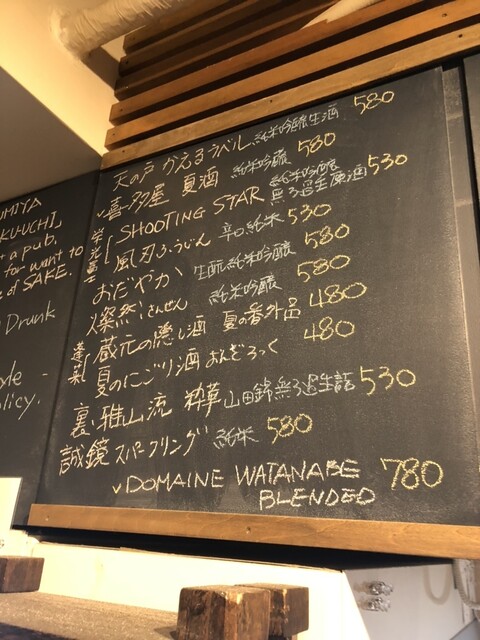 天の戸 かえるラベル 純米吟醸生酒 580
喜多屋 夏酒 純米吟醸 580
SHOOTING STAR 純米吟醸 無ろ過生原酒 530
風刃ふうじん 辛口純米 530
おだやか 生酛純米吟醸 580
燦然 さんぜん 純米吟醸 580
蓬莱
蔵元の隠し酒 夏の番外品 480
夏のにごり酒 おんざろっく 480
裏・雅山流 粋華 山田錦無ろ過生詰 530
誠鏡 スパークリング 純米 580
DOMAINE WATANABE BLENDED 780
UMIYA
KUUCHI,
a pub.
for want to
SAKE.
Drunk